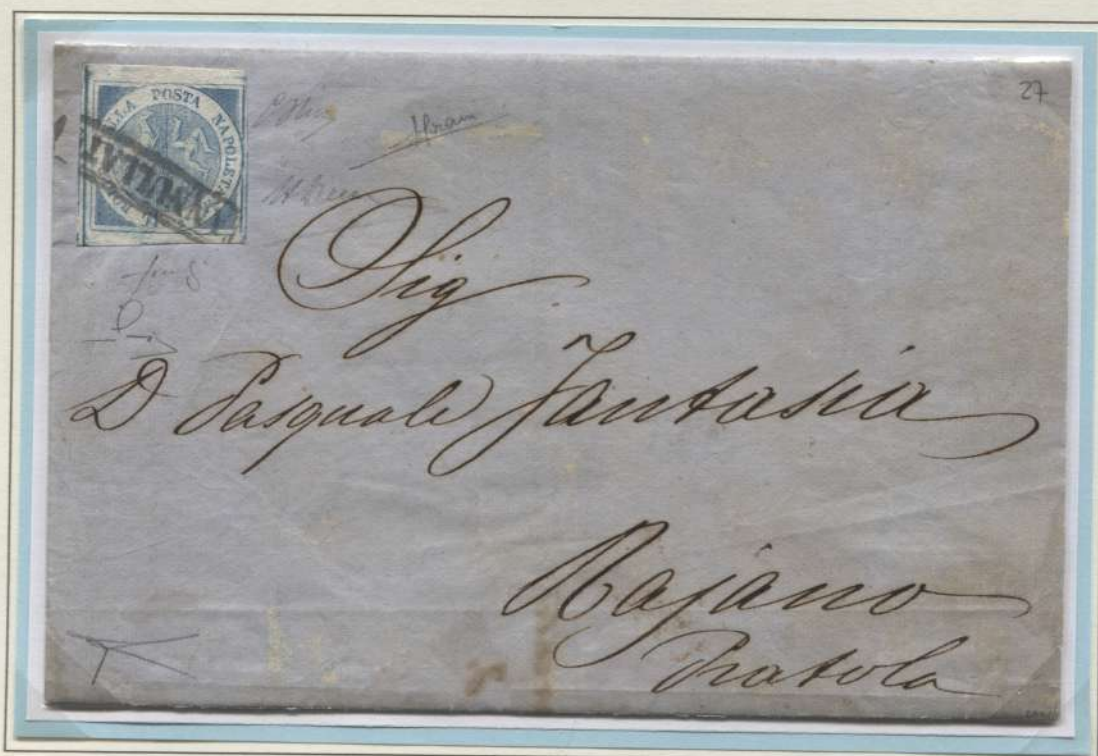 27
LLA POSTA NAPOLETA
ANNULLAT
Sig
D Pasquale Fantasia
Rajano
Pratola